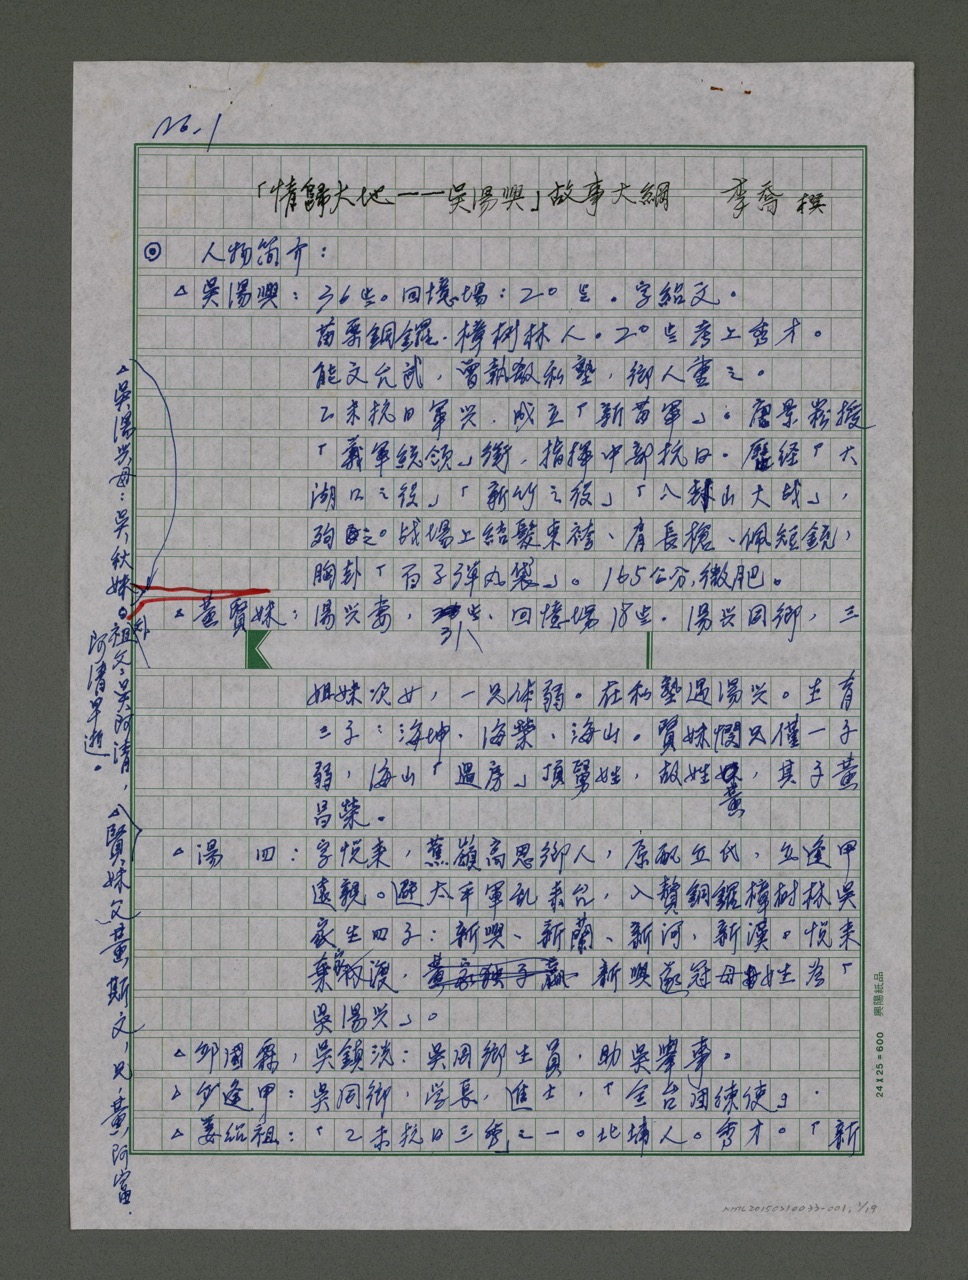 NO.1
「情歸大地——吳湯興」故事大綱 李喬 撰
◎ 人物简介：
△吳湯興：36岁。回憶場：20岁。字紹文。
苗栗銅鑼．樟树林人。20岁考上秀才。
能文允武，曾執教私塾，鄉人重之。
乙未抗日軍兴，成立「新苗軍」；唐景崧授
「義軍統領」銜，指揮中部抗日。歷经「大
湖口之役」「新竹之役」「八卦山大战」，
殉之。战場上結髮束袴、肩長槍、佩短銃，
胸卦「百子彈丸袋」。165公分，微肥。
△黃賢妹：湯兴妻，31岁、回憶場18岁。湯兴同鄉，三
姐妹次女，一兄体弱。在私塾遇湯兴。生育
三子：海坤、海榮、海山。賢妹憫兄僅一子
弱，海山「過房」頂舅姓，故姓黃，其子黃
昌榮。
△湯 四：字悅來，蕉嶺高思鄉人，原配丘氏，丘逢甲
遠親。避太平軍乱来台，入贅銅鑼樟樹林吳
家生四子：新興、新蘭、新河、新漢。悅来
棄家 渡，新興遂冠母姓為「
吳湯兴」。
△邱國霖，吳鎮洸：吳同鄉生員，助吳舉事。
△丘逢甲：吳同鄉，学長，進士，「全台团練使」．
△姜紹祖：「乙未抗日三秀」之一。北埔人。秀才。「新
△吳湯兴母：吳秋妹。祖父：吳阿清，
阿清早逝。
△賢妹父黃斯文，兄 黃阿富．
24×25＝600 興陽紙品
NMTL20150210033-001, 1/19